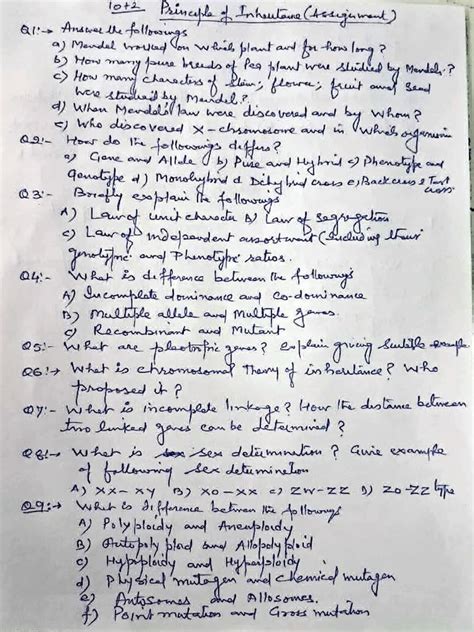 10+2 Principle of Inheritance (Assignment)
Q1:- Answer the followings
a) Mendel worked on which plant and for how long?
b) How many pure breeds of Pea plant were studied by Mendel?
c) How many characters of Stem, flower, fruit and Seed
were studied by Mendel?
d) When Mendel's law were discovered and by Whom?
e) Who discovered X-chromosome and in which organism
Q2:- How do the followings differs?
a) Gene and Allele b) Pure and Hybrid c) Phenotype and
Genotype d) Monohybrid & Dihybrid cross e) Back cross & Test
cross
Q3:- Briefly explain the followings
A) Law of unit characte B) Law of Segregation
C) Law of Independent assortment (Including their
genotypic and Phenotypic ratios.
Q4:- What is difference between the followings
A) Incomplete dominance and co-dominance
B) Multiple allele and Multiple genes.
C) Recombinant and Mutant
Q5:- What are pleotropic genes? Explain giving suitable example
Q6:- What is chromosomal Theory of inheritance? Who
proposed it?
Q7:- What is incomplete linkage? How the distance between
two linked genes can be determined?
Q8:- What is sex determination? Give example
of following sex determination
A) XX-XY B) XO-XX C) ZW-ZZ D) ZO-ZZ type
Q9:- What is difference between the followings
A) Polyploidy and Aneuploidy
B) Autopolyploid and Allopolyploid
C) Hypoploidy and Hyperploidy
d) Physical mutagen and chemical mutagen
e) Autosomes and Allosomes.
f) Point mutation and Gross mutation